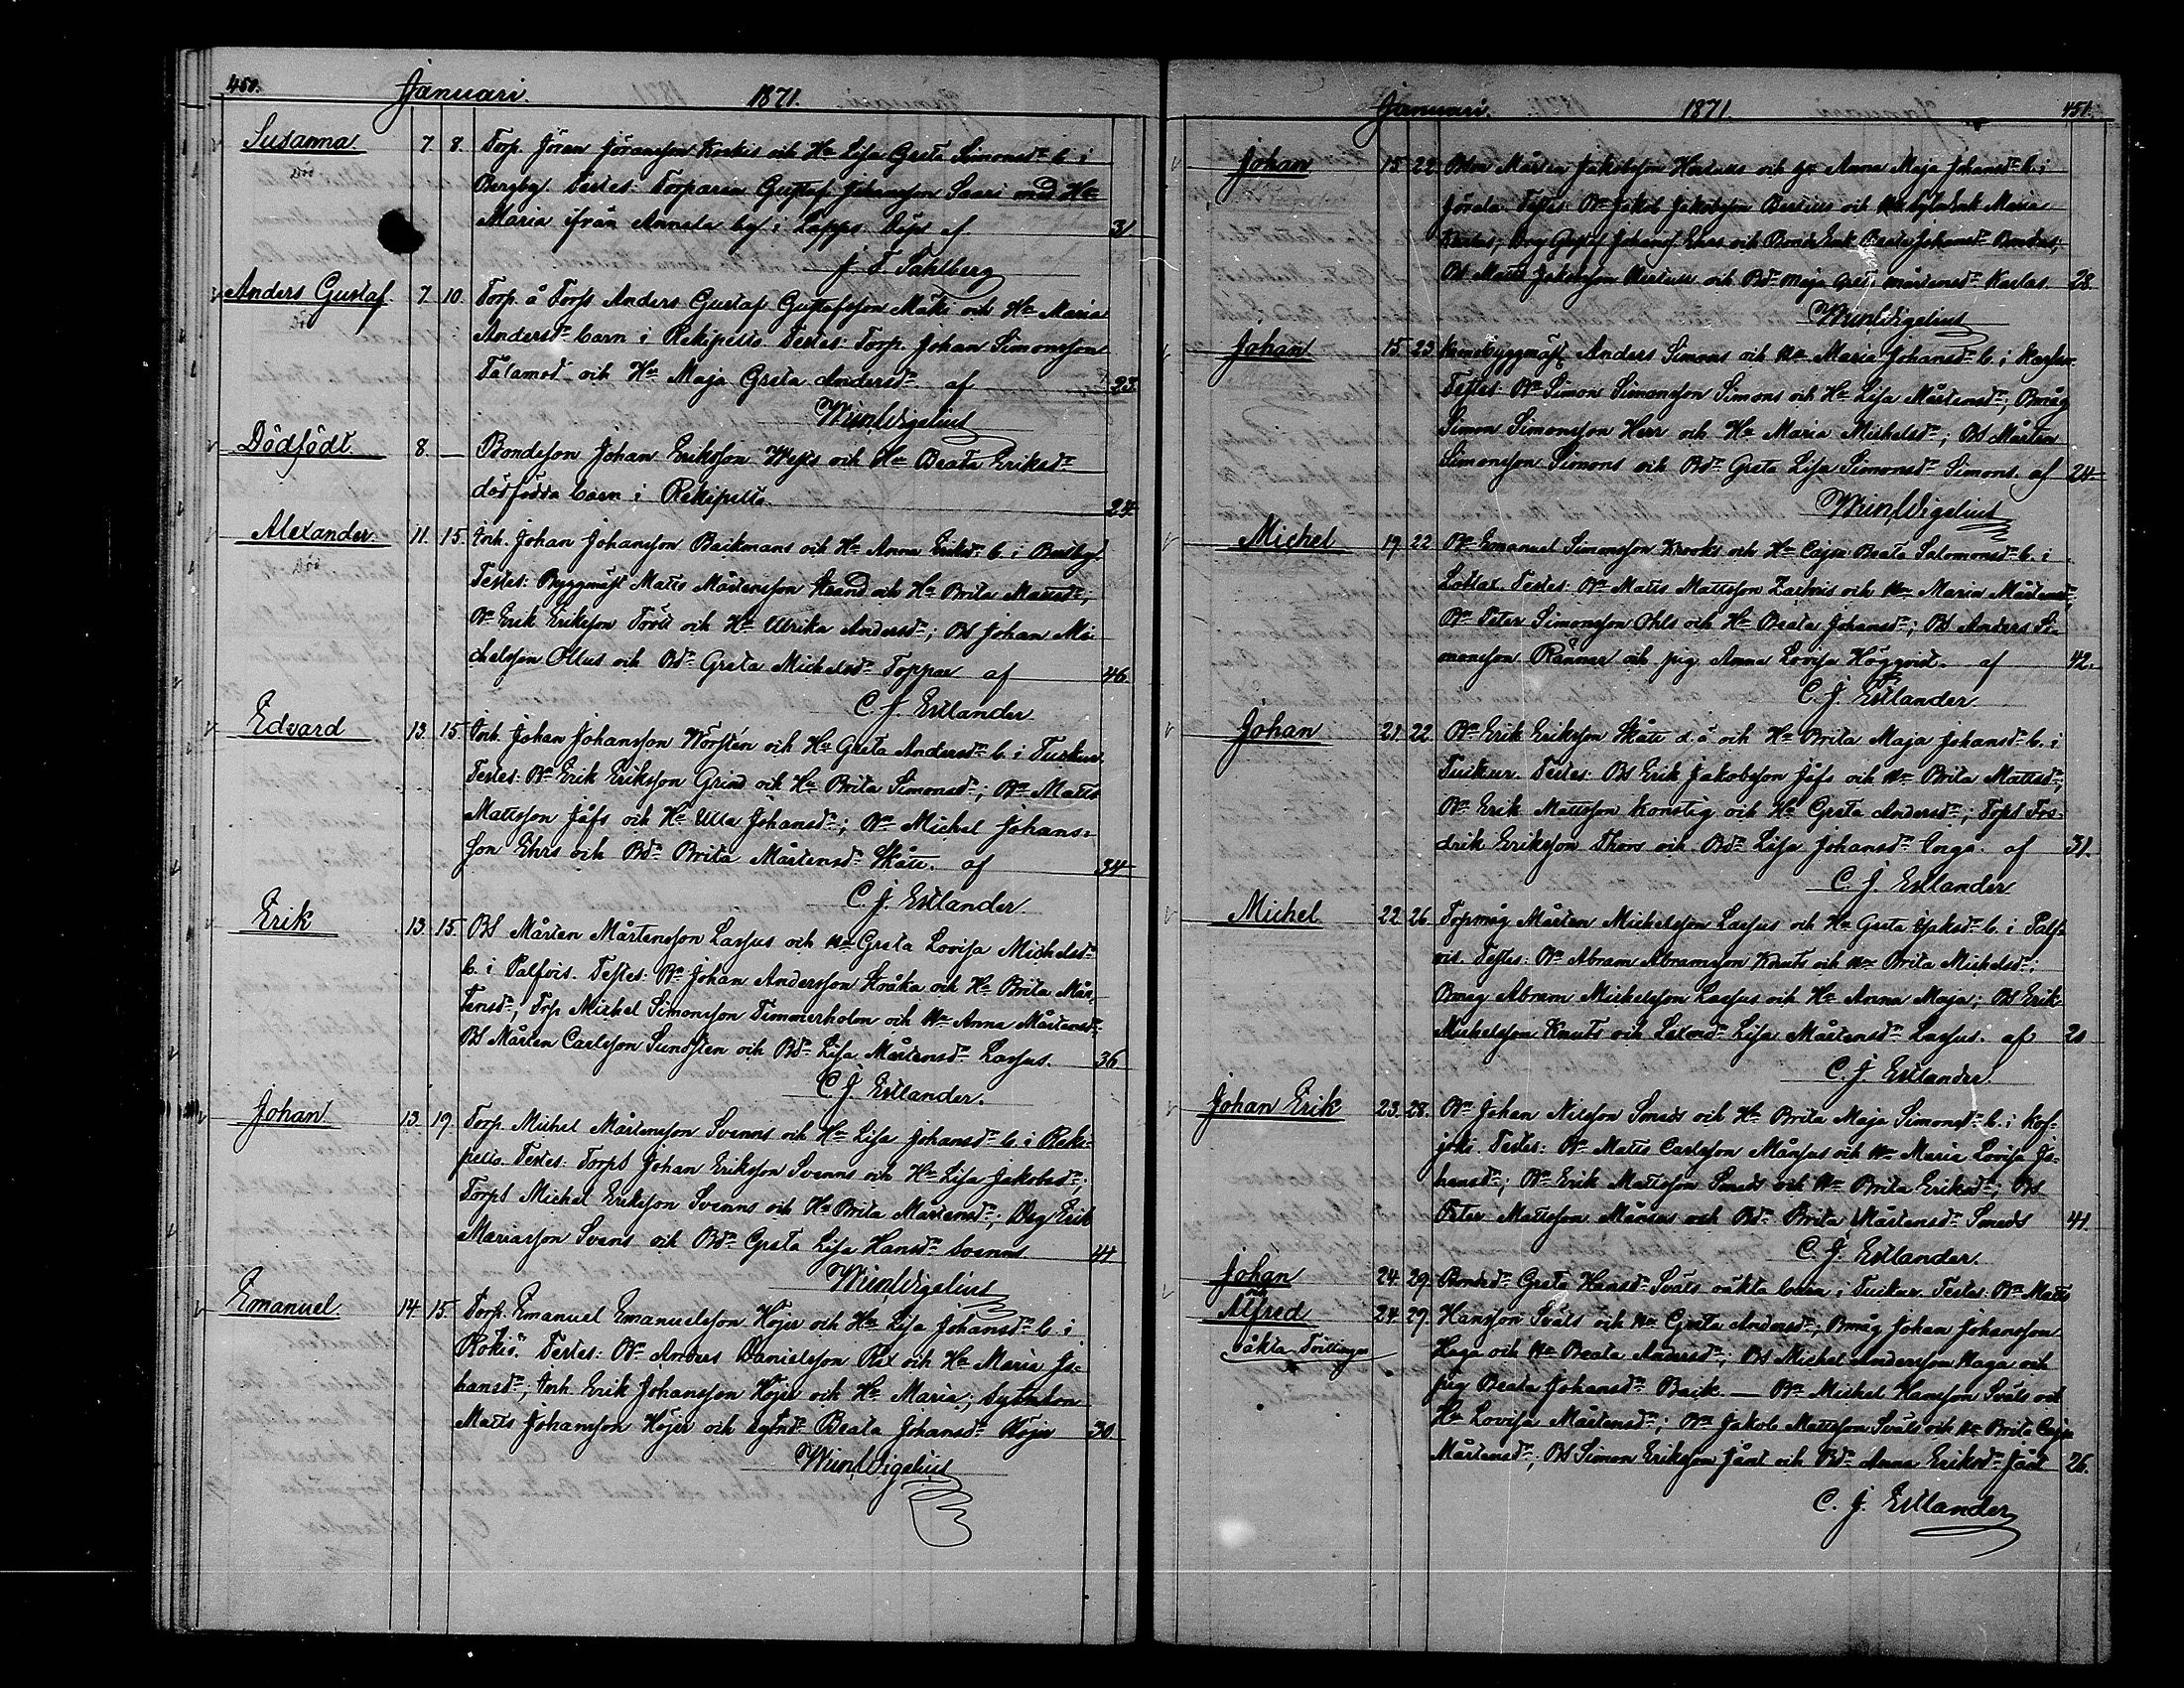 450.
Januari. 1871.
Susanna. 7. 8. Torp. Jöran Jöransson Koskis och Hu Lisa Greta Simonsdr b. i
Död Bergby. Testes: Torparen Gustaf Johansson Saari med Hu
Maria ifrån Annala by i Lappo. Döpt af 31
J. F. Sahlberg
Anders Gustaf. 7. 10. Torp. å Torps Anders Gustaf Gustafsson Mäki och Hu Maria
Död Andersdr barn i Rekipelto. Testes: Torp. Johan Simonsson
Tålamod och Hu Maja Greta Andersdr af 23.
Wigelius
Dödfödt. 8. — Bondeson Johan Eriksson Wexs och Hu Beata Eriksdr
dödfödda barn i Rekipelto. 24.
Alexander 11. 15. Inh. Johan Johansson Backmans och Hu Anna Eriksdr b. i Böleby.
Död Testes: Byggmäst Matts Mårtensson Strand och Hu Brita Mattsdr;
Bn Erik Eriksson Töös och Hu Ulrika Andersdr; BS Johan Mi-
chelsson Ollus och Bdr Greta Michelsdr Toppar af 46.
C. J. Estlander
Edvard 13. 15. Inh. Johan Johansson Worstén och Hu Greta Andersdr b. i Tuckur.
Testes: Bn Erik Eriksson Grind och Hu Brita Simonsdr; Bn Matts
Mattsson Jåfs och Hu Ulla Johansdr; Bn Michel Johans-
son Ehrs och Bdr Brita Mårtensdr Skåte. af 34
C. J. Estlander
Erik 13. 15. BS Mårten Mårtensson Lassus och Hu Greta Lovisa Michelsdr
b. i Palfvis. Testes: Bn Johan Andersson Kråka och Hu Brita Mår-
tensdr; Torp Michel Simonsson Timmerholm och Hu Anna Mårtensdr;
BS Mårten Carlsson Sundsten och Bdr Lisa Mårtensdr Lassus. 36
C. J. Estlander.
Johan. 13. 19. Torp. Michel Mårtensson Svenns och Hu Lisa Johansdr b. i Reki-
pelto. Testes: TorpS Johan Eriksson Svenns och Hu Lisa Jakobsdr;
TorpS Michel Eriksson Svenns och Hu Brita Mårtensdr; Dreg Erik
Mariasson Svens och Bdr Greta Lisa Hansdr Svenns 44
Wigelius
Emanuel. 14. 15. Torp. Emanuel Emanuelsson Höjer och Hu Lisa Johansdr b. i
Rökiö. Testes: Bn Anders Danielsson Rex och Hu Maria Jo-
hansdr; Inh. Erik Johansson Höjer och Hu Maria; Sytn.son
Matts Johansson Höjer och sytndr Beata Johansdr Höjer 30
Wigelius
Januari. 1871. 451.
Johan 15. 22. Mårten Jakobsson och Hu Anna Maja Johansdr b. i
Jörala. Testes: Bn Jakob Jakobsson och Maria
Gustaf Johansson och Beata Johansdr
BS Matts Jakobsson och Bdr Maja Greta Mårtensdr Karlas 28.
Wigelius
Johan 15. 23. Anders Simons och Hu Maria Johansdr b. i
Testes: Bn Simon Simonsson Simons och Hu Lisa Mårtensdr; Bmåg
Simon Simonsson Herr och Hu Maria Michelsdr; BS Mårten
Simonsson Simons och Bdr Greta Lisa Simonsdr Simons. af 24.
Wigelius
Michel 19. 22 Bn Emanuel Simonsson Krooks och Hu Cajsa Beata Salomonsdr b. i
Lotlax. Testes: Bn Matts Mattsson Zachris och Hu Maria Mårtensdr;
Bn Peter Simonsson Ohls och Hu Beata Johansdr; BS Anders Si-
monsson Rännar och pig. Anna Lovisa Högqvist. af 42.
C. J. Estlander
Johan 21. 22. Bn Erik Eriksson Skåte d.ä och Hu Brita Maja Johansdr b. i
Tuckur. Testes: BS Erik Jakobsson Jåfs och Hu Brita Mattsdr;
Bn Erik Mattsson Konstig och Hu Greta Andersdr; TorpS Fre-
drik Eriksson Thors och Bdr Lisa Johansdr Enga. af 31.
C. J. Estlander
Michel 22. 26. Torpmåg Mårten Michelsson Lassus och Hu Greta Isaksdr b. i Palf-
vis. Testes: Bn Abram Abramsson Knuts och Hu Brita Michelsdr;
Bmåg Abram Michelsson Lassus och Hu Anna Maja; BS Erik
Michelsson Knuts och Lisa Mårtensdr Lassus. af 20
C. J. Estlander.
Johan Erik 23. 28. Bn Johan Nilsson Smeds och Hu Brita Maja Simonsdr b. i Kos-
joki. Testes: Bn Matts Carlsson Månsus och Hu Maria Lovisa Jo-
hansdr; Bn Erik Mattsson Smeds och Hu Brita Eriksdr; BS
Peter Mattsson Månsus och Bdr Brita Mårtensdr Smeds 41
C. J. Estlander.
Johan 24. 29. Bondedr Greta Hansdr Sväls oäkta barn i Tuckur. Testes: Bn Matts
och
Alfred 24. 29. Hansson Sväls och Hu Greta Andersdr; Bmåg Johan Johansson
oäkta Tvillingar Haga och Hu Beata Andersdr; BS Michel Andersson Haga och
pig Beata Johansdr Back. — Bn Michel Hansson Sväls och
Hu Lovisa Mårtensdr; Bn Jakob Mattsson Sväls och Hu Brita Cajsa
Mårtensdr; BS Simon Eriksson Jåfs och Bdr Anna Eriksdr Jåfs 26.
C. J. Estlander